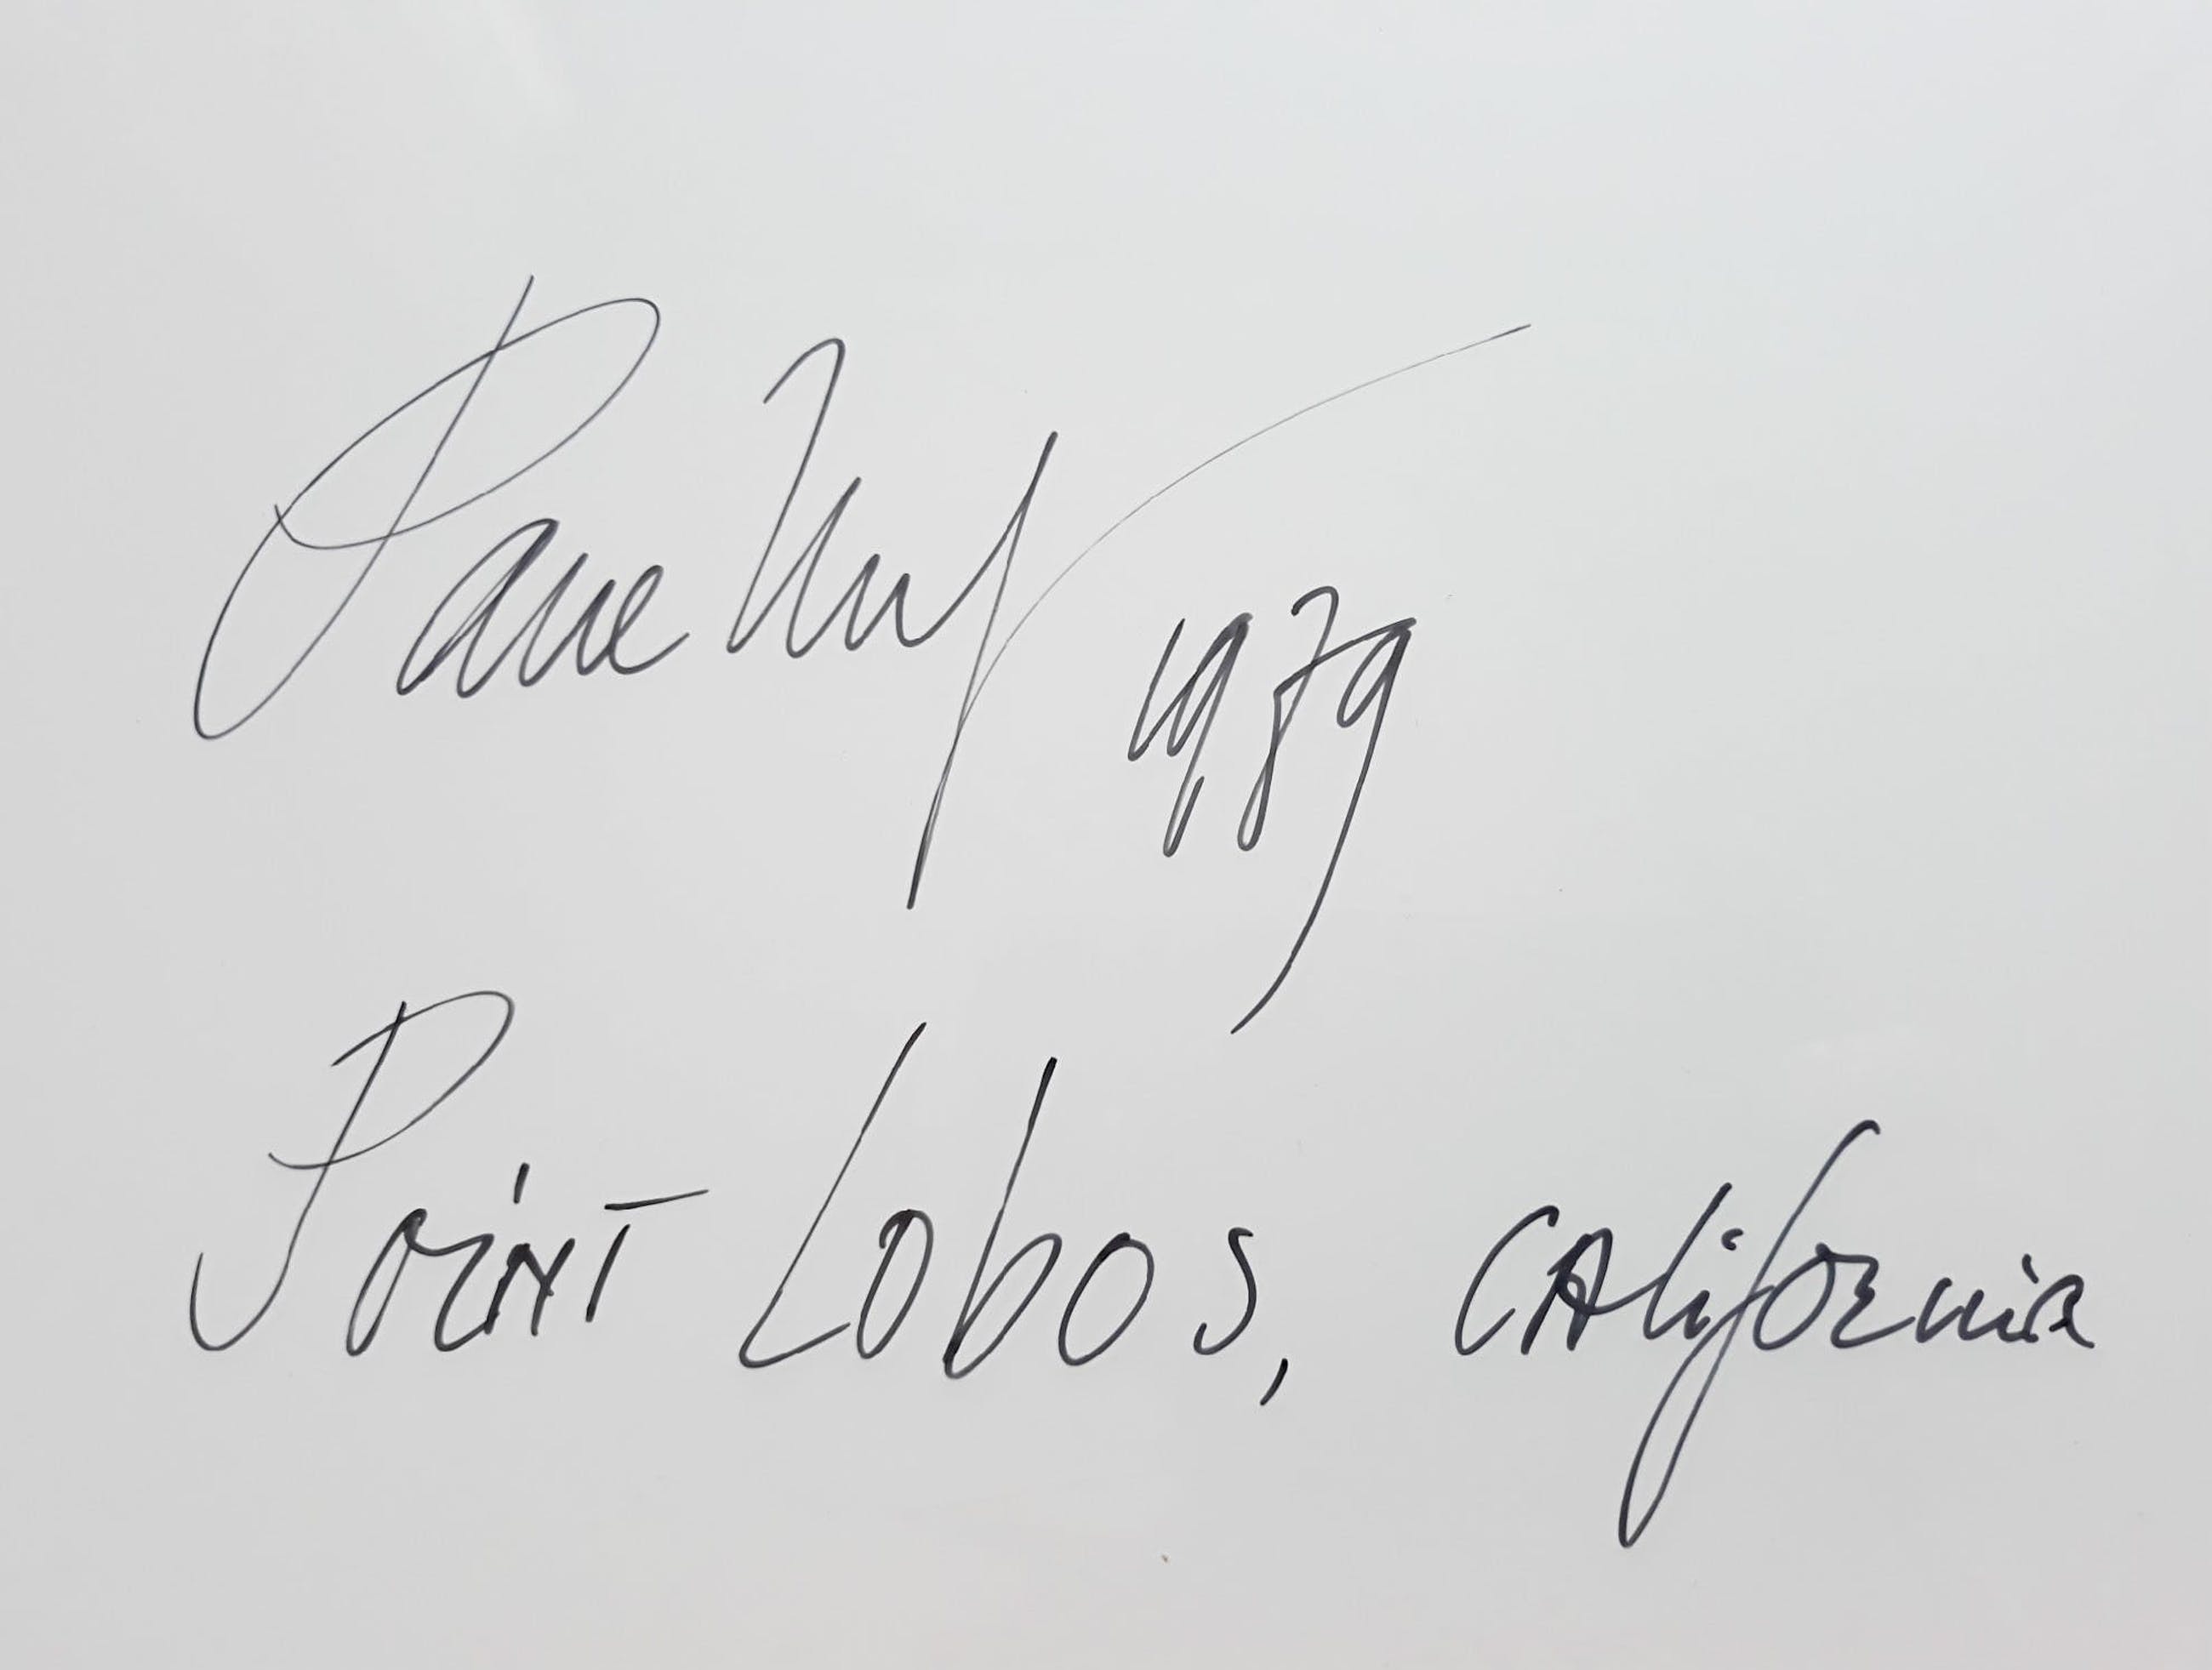 1979
Point Lobos, California